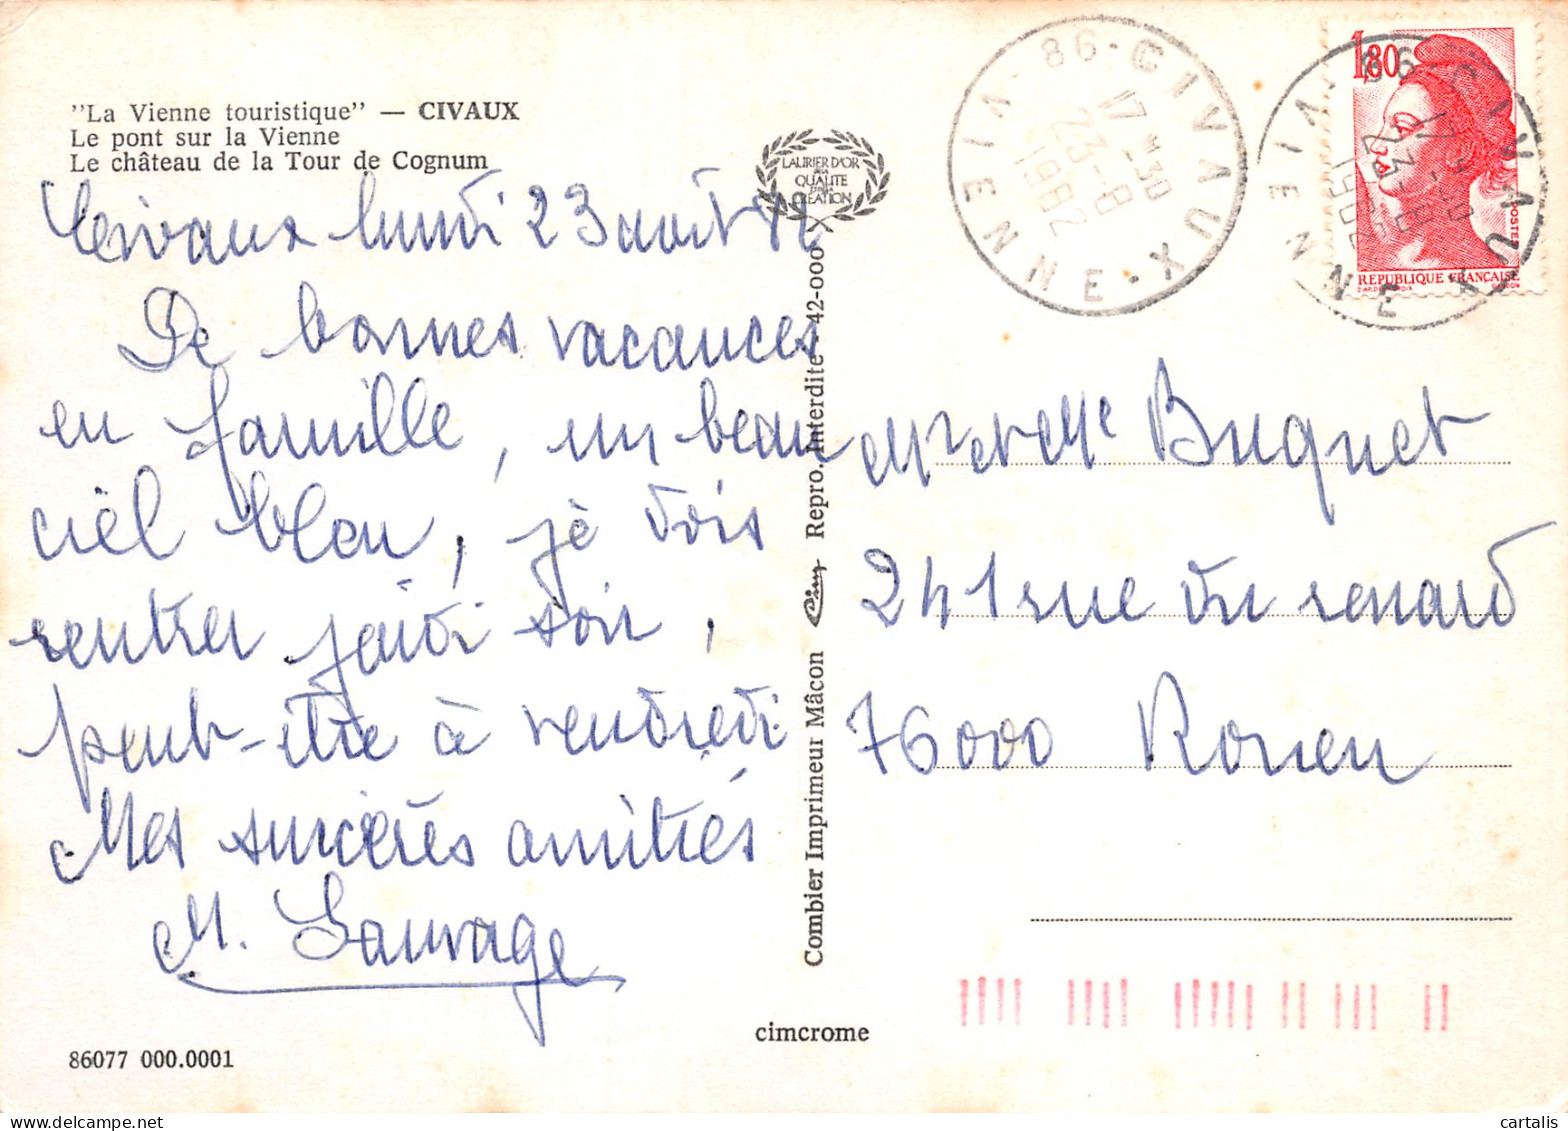 "La Vienne touristique" — CIVAUX
Le pont sur la Vienne
Le château de la Tour de Cognum
Civaux lundi 23 août 82
De bonnes vacances
en famille, un beau
ciel bleu, je dois
rentrer jeudi soir,
peut-être à vendredi
Mes sincères amitiés
M. Sauvage
86077 000.0001
LAURIER D'OR
DE LA
QUALITE
CREATION
Combier Imprimeur Mâcon Cim Repro. Interdite - 42-000
cimcrome
86-CIVAUX
17H-30
23-8
1982
VIENNE
1,80
86-CIVAUX
17H-30
23-8
1982
VIENNE
POSTES
REPUBLIQUE FRANÇAISE
Mr et Mme Buquet
241 rue du renard
76000 Rouen
cartalis